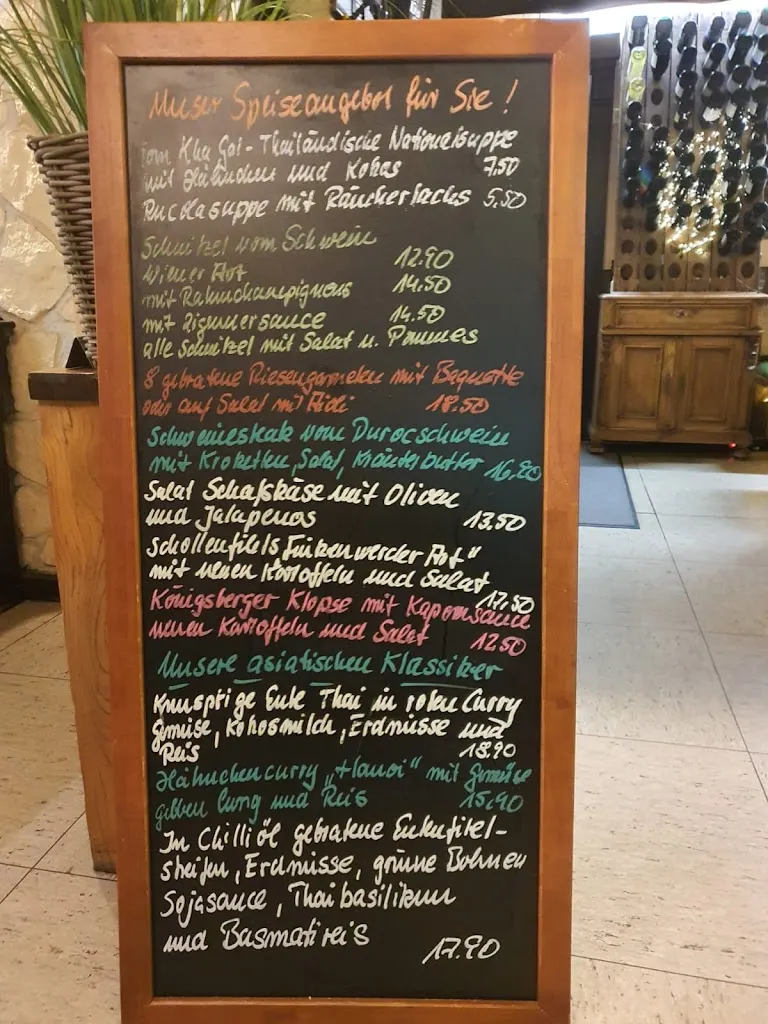 Unser Speiseangebot für Sie!
Tom Kha Gai - Thailändische Nationalsuppe
mit Hähnchen und Kokos 7,50
Rucolasuppe mit Räucherlachs 5,50
Schnitzel vom Schwein
Wiener Art 12.90
mit Rahmchampignons 14.50
mit Zigeunersauce 14.50
alle Schnitzel mit Salat u. Pommes
8 gebratene Riesengarnelen mit Baguette
oder auf Salat mit Aioli 18.50
Schweinesteak vom Durocschwein
mit Kroketten, Salat, Kräuterbutter 16.90
Salat Schafskäse mit Oliven
und Jalapenos 13.50
Schollenfilets „Finkenwerder Art"
mit neuen Kartoffeln und Salat
17,50
Königsberger Klopse mit Kapernsauce
neuen Kartoffeln und Salat 12.50
Unsere asiatischen Klassiker
Knusprige Ente Thai in roten Curry
gemüse, Kokosmilch, Erdnüsse und
Reis 18.90
Hähnchencurry „Hanoi" mit Gemüse
gelben Curry und Reis 15.90
In Chilliöl gebratene Entenfilet-
streifen, Erdnüsse, grüne Bohnen
Sojasauce, Thaibasilikum
und Basmatireis 17.90